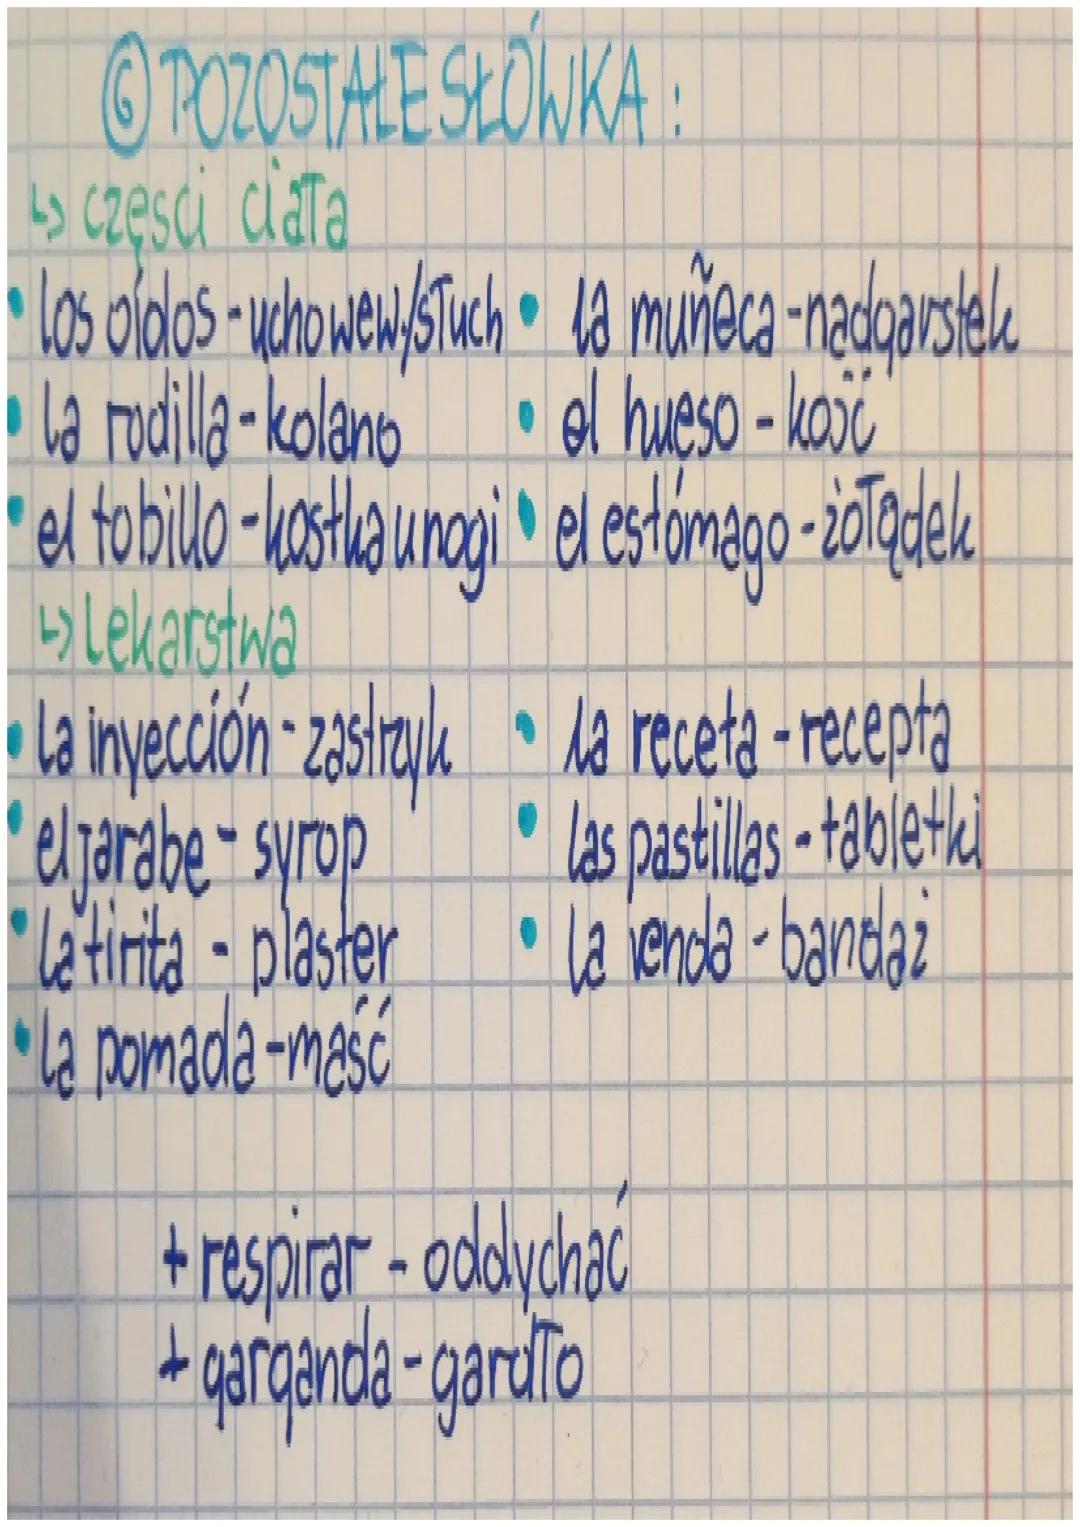 ⑥ POZOSTAŁE SŁÓWKA :
↳ części ciała
• los oídos - ucho wew./słuch • la muñeca - nadgarstek
• la rodilla - kolano • el hueso - kość
• el tobillo - kostka u nogi • el estómago - żołądek
↳ Lekarstwa
• la inyección - zastrzyk • la receta - recepta
• el jarabe - syrop • las pastillas - tabletki
• la tirita - plaster • la venda - bandaż
• la pomada - maść
+ respirar - oddychać
+ garganda - gardło